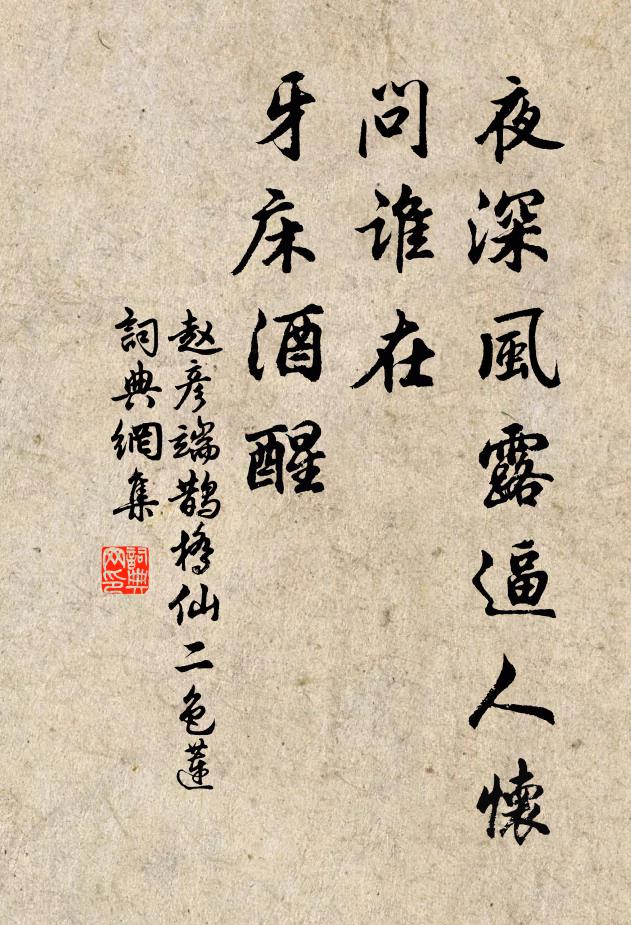 夜深風露逼人懷
問誰在
牙床酒醒
赵彦端鹊橋仙二色蓮
詞典網集
詞典
网印